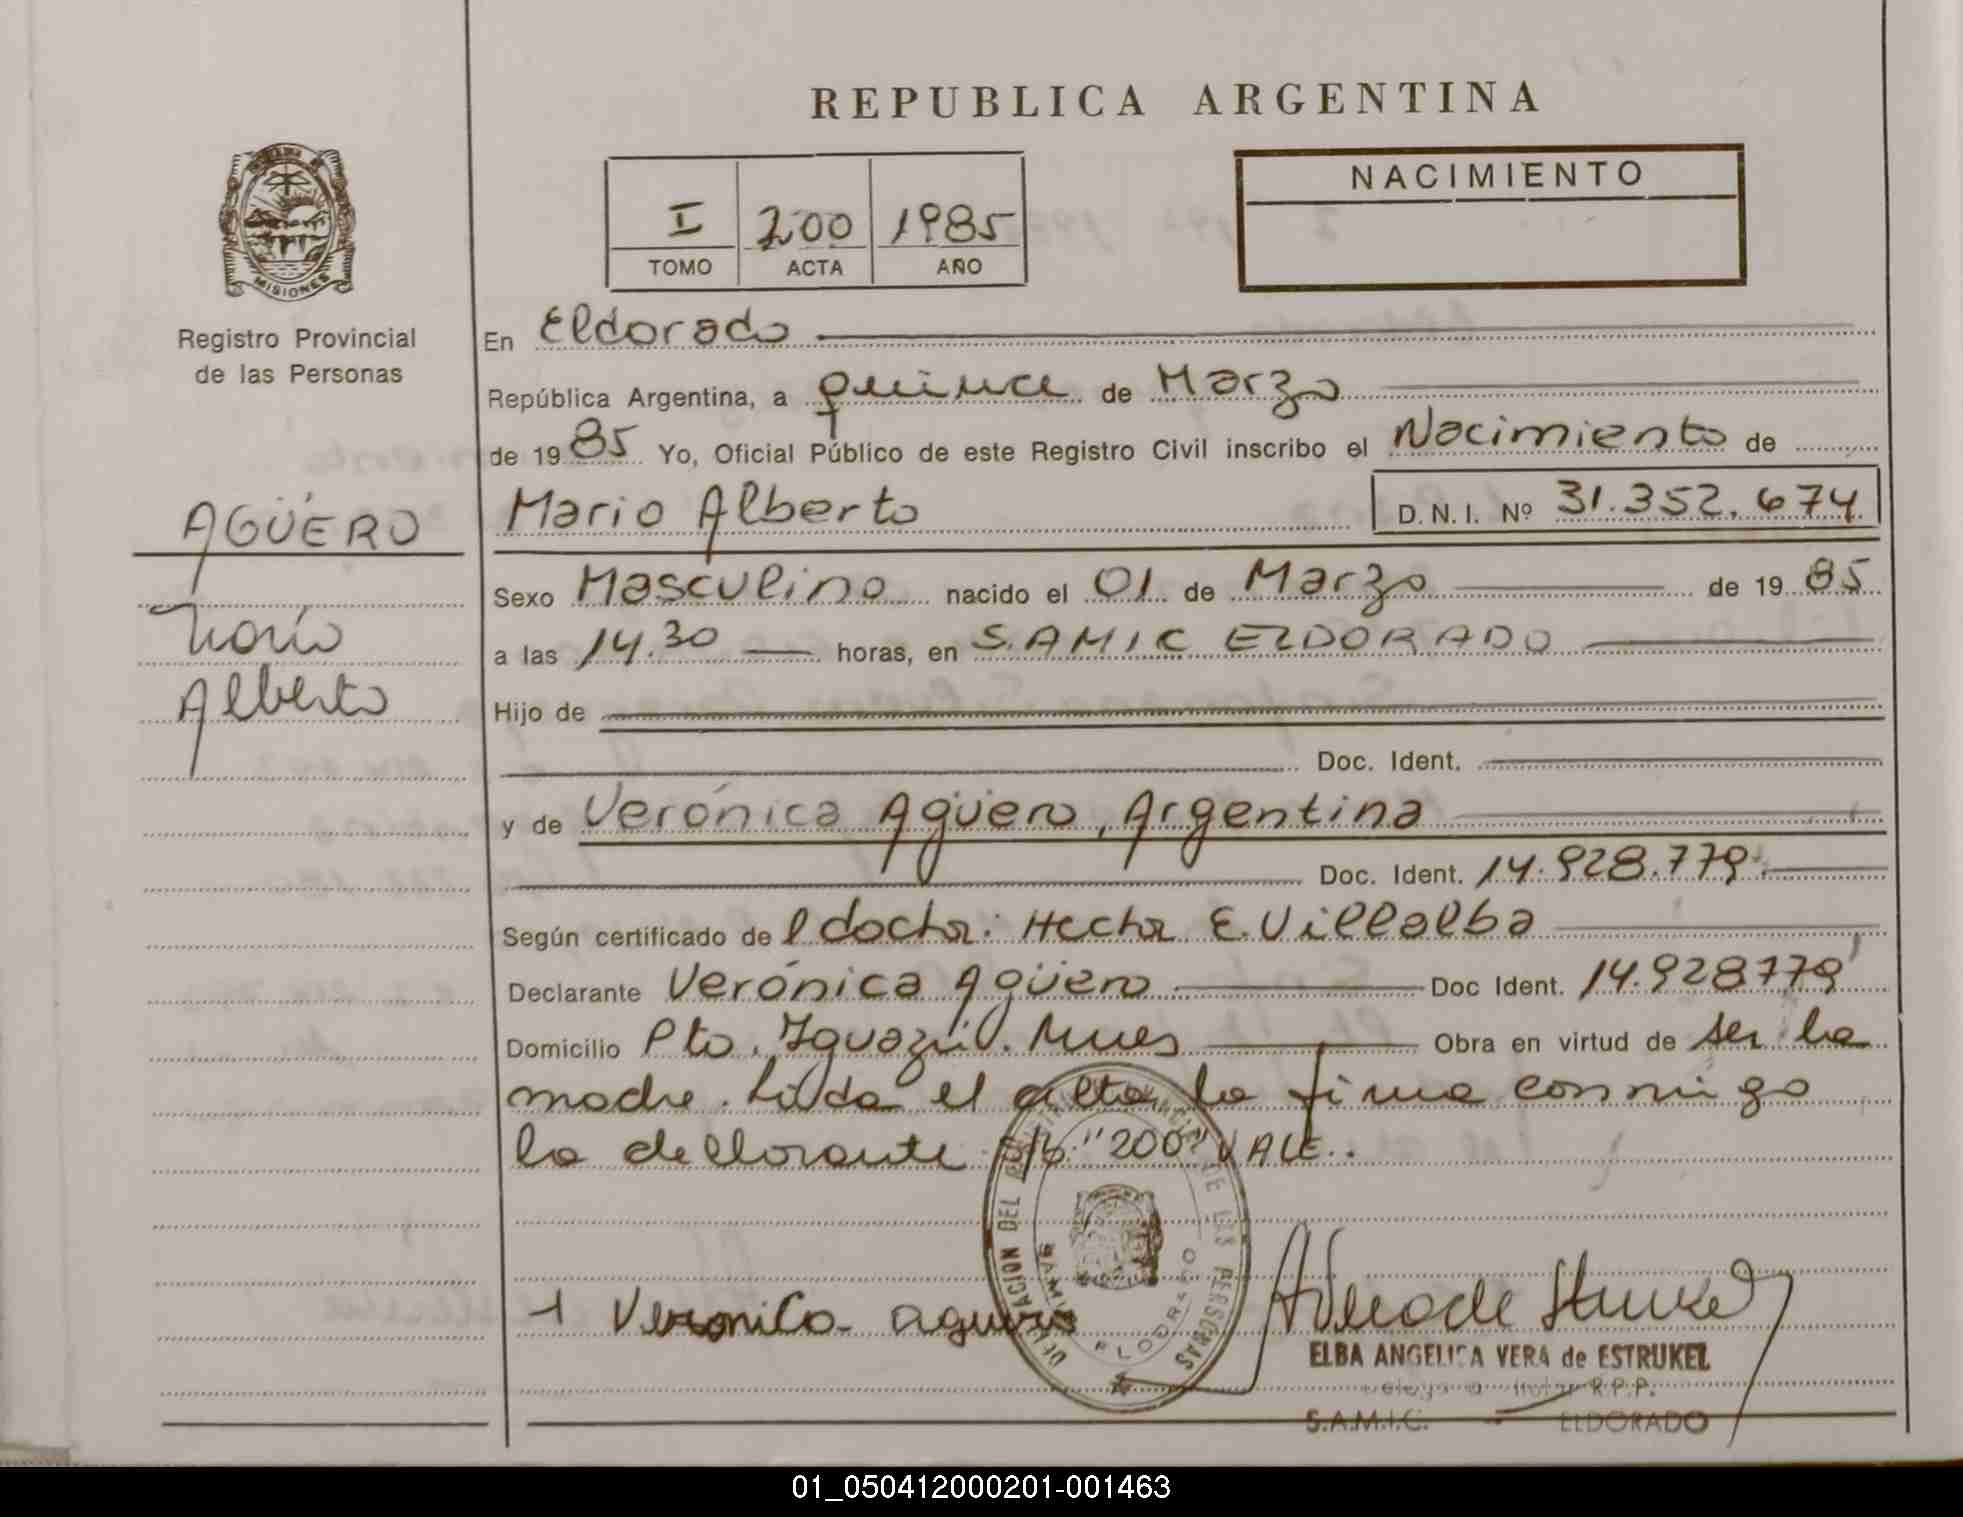 REPUBLICA ARGENTINA
NACIMIENTO
I 200 1985
TOMO ACTA AÑO
MISIONES
Registro Provincial
de las Personas
En Eldorado
República Argentina, a quince de Marzo
de 1985 Yo, Oficial Público de este Registro Civil inscribo el Nacimiento de
AGÜERO
Mario Alberto D.N.I. Nº 31.352.674
Sexo Masculino nacido el 01 de Marzo de 1985
Mario
a las 14.30 horas, en S.A.M.I.C ELDORADO
Alberto
Hijo de
Doc. Ident.
y de Verónica Agüero, Argentina
Doc. Ident. 14.928.779
Según certificado del doctor: Hector E. Villalba
Declarante Verónica Agüero Doc Ident. 14.928779
Domicilio Pto. Iguazú. Mnes Obra en virtud de ser la
madre. Leída el acta la firma conmigo
la declarante s/b "200" VALE.
DELEGACION DEL DE LAS PERSONAS
SAMIC
ELDORADO
Veronica aguero
ELBA ANGELICA VERA de ESTRUKEL
R.P.P.
S.A.M.I.C. ELDORADO
01_050412000201-001463